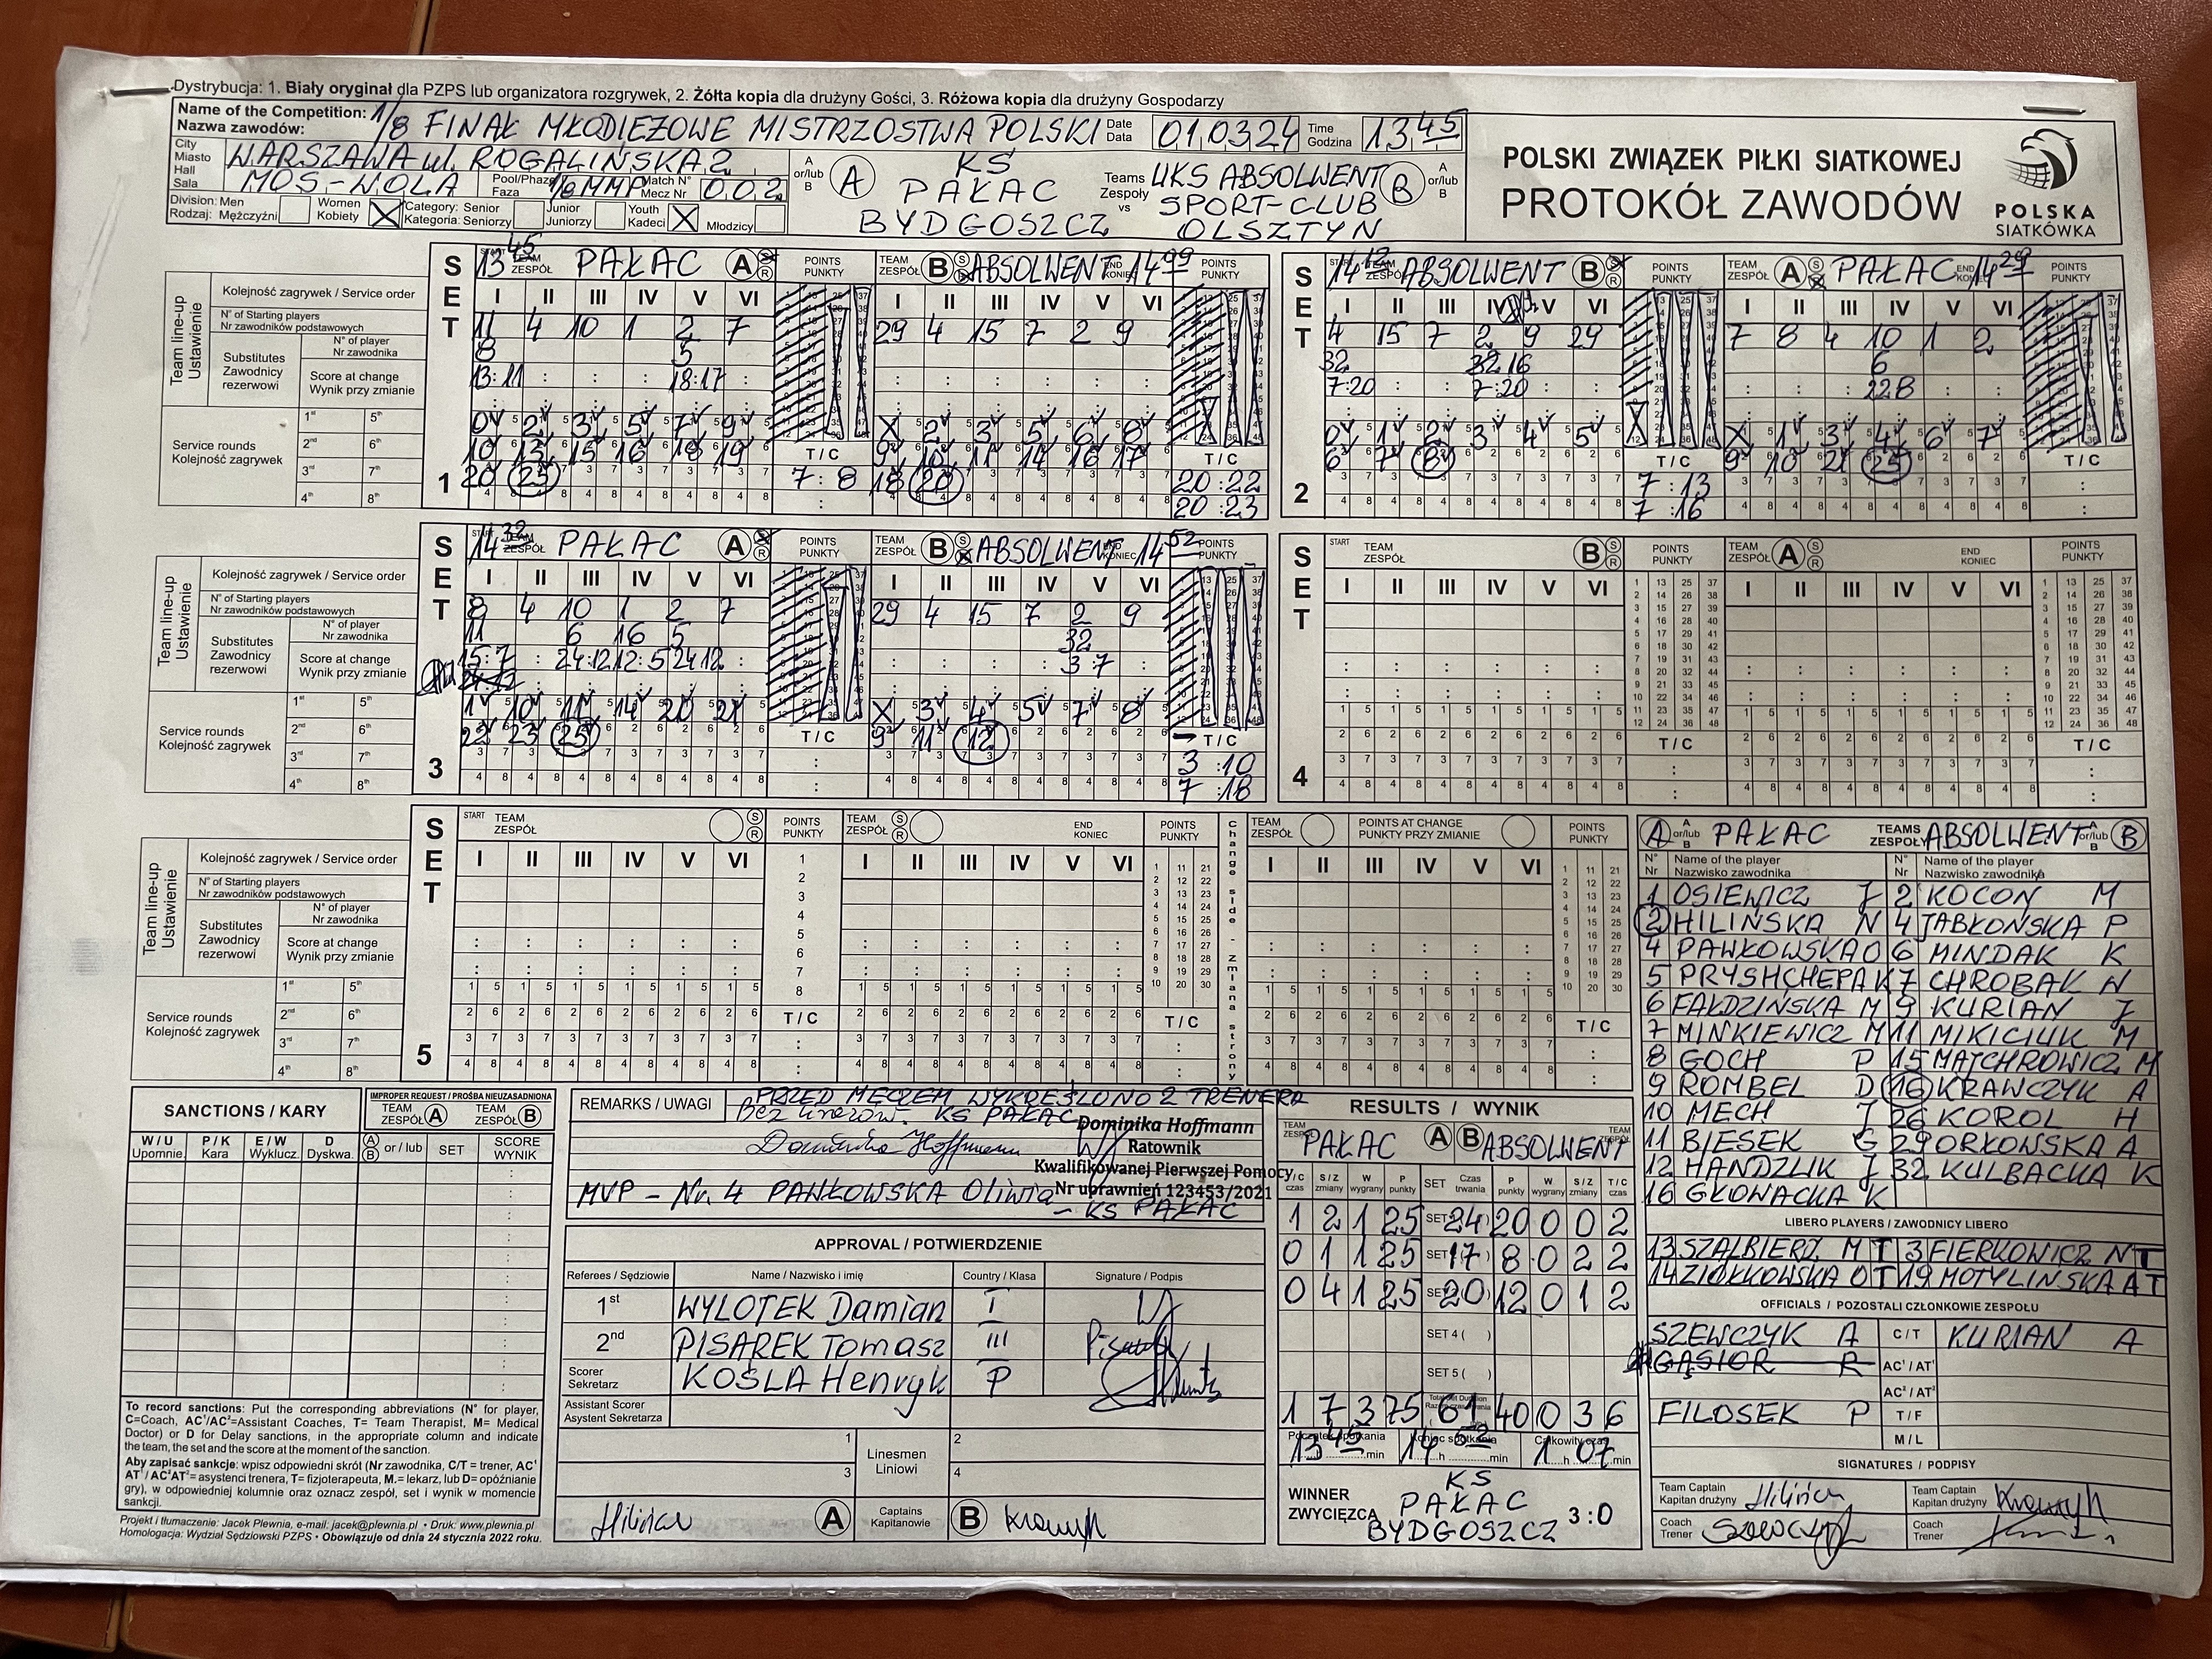 Dystrybucja: 1. Biały oryginał dla PZPS lub organizatora rozgrywek, 2. Żółta kopia dla drużyny Gości, 3. Różowa kopia dla drużyny Gospodarzy
Name of the Competition: 1/8 FINAŁ MŁODZIEŻOWE MISTRZOSTWA POLSKI
Nazwa zawodów:
Date Data 01.03.24 Time Godzina 13 45
City Miasto WARSZAWA ul. ROGALIŃSKA 2
Hall Sala MOS-WOLA Pool/Phaze Faza 1/8 MMP Match N° Mecz Nr 002
Division: Men Rodzaj: Mężczyźni Women Kobiety X Category: Senior Kategoria: Seniorzy Junior Juniorzy Youth Kadeci X Młodzicy
A or/lub B A KS PAŁAC BYDGOSZCZ Teams Zespoły vs UKS ABSOLWENT SPORT-CLUB OLSZTYN B A or/lub B
POLSKI ZWIĄZEK PIŁKI SIATKOWEJ
PROTOKÓŁ ZAWODÓW
POLSKA SIATKÓWKA
SET 1
13 45 TEAM ZESPÓŁ PAŁAC A POINTS PUNKTY
TEAM ZESPÓŁ B ABSOLWENT 14 09 POINTS PUNKTY
Team line-up Ustawienie
Kolejność zagrywek / Service order
N° of Starting players
Nr zawodników podstawowych
Substitutes Zawodnicy rezerwowi
N° of player Nr zawodnika
Score at change Wynik przy zmianie
Service rounds Kolejność zagrywek
I II III IV V VI
11 4 10 1 2 7
8 5
13:11 18:17
0 2 3 5 7 9
10 13 15 16 18 19
20 25
T / C
7 : 8
I II III IV V VI
29 4 15 7 2 9
X 2 3 5 6 8
9 10 11 14 16 17
18 20
T / C
20 :22
20 :23
SET 2
14 12 ABSOLWENT B POINTS PUNKTY
TEAM ZESPÓŁ A PAŁAC 14 29 POINTS PUNKTY
I II III IV V VI
4 15 7 2 9 29
32 32 16
7:20 7:20
0 1 2 3 4 5
6 7 8
T / C
7 :13
7 :16
I II III IV V VI
7 8 4 10 1 2
6
22 8
X 1 3 4 6 7
9 10 21 25
T / C
SET 3
14 32 PAŁAC A POINTS PUNKTY
TEAM ZESPÓŁ B ABSOLWENT 14 52 POINTS PUNKTY
I II III IV V VI
8 4 10 1 2 7
11 6 16 5
15:7 24:12 12:5 24 12
1 10 11 14 20 21
22 23 25
T / C
I II III IV V VI
29 4 15 7 2 9
32
3 :7
X 3 4 5 7 8
9 11 12
T / C
3 :10
7 :18
SET 4
START TEAM ZESPÓŁ B S R POINTS PUNKTY
TEAM ZESPÓŁ A S R END KONIEC POINTS PUNKTY
I II III IV V VI
T / C
SET 5
START TEAM ZESPÓŁ S R POINTS PUNKTY
TEAM ZESPÓŁ S R END KONIEC POINTS PUNKTY
Change side - Zmiana strony
TEAM ZESPÓŁ POINTS AT CHANGE PUNKTY PRZY ZMIANIE POINTS PUNKTY
I II III IV V VI
T / C
A A or/lub B PAŁAC TEAMS ZESPOŁY ABSOLWENT A or/lub B B
N° Nr Name of the player Nazwisko zawodnika N° Nr Name of the player Nazwisko zawodnika
1 OSIEWICZ J 2 KOCON M
2 HILIŃSKA N 4 JABŁOŃSKA P
4 PAWŁOWSKA O 6 MINDAK K
5 PRYSHCHEPA K 7 CHROBAK N
6 FAŁDZIŃSKA M 9 KURIAN J
7 MINKIEWICZ M 11 MIKICIUK M
8 GOCH P 15 MAJCHROWICZ M
9 ROMBEL D 16 KRAWCZYK A
10 MECH J 26 KOROL H
11 BIESEK G 29 ORŁOWSKA A
12 HANDZLIK J 32 KULBACKA K
16 GŁOWACKA K
LIBERO PLAYERS / ZAWODNICY LIBERO
13 SZALBIERZ M T 3 FIERKOWICZ N T
14 ZIÓŁKOWSKA O T 19 MOTYLIŃSKA A T
OFFICIALS / POZOSTALI CZŁONKOWIE ZESPOŁU
SZEWCZYK A C/T KURIAN A
GĄSIOR R AC¹/AT¹
AC²/AT²
FILOSEK P T/F
M/L
SIGNATURES / PODPISY
Team Captain Kapitan drużyny Team Captain Kapitan drużyny
Coach Trener Coach Trener
SANCTIONS / KARY
IMPROPER REQUEST / PROŚBA NIEUZASADNIONA
TEAM ZESPÓŁ A TEAM ZESPÓŁ B
W / U Upomnie. P / K Kara E / W Wyklucz. D Dyskwa. A B or / lub SET SCORE WYNIK
To record sanctions: Put the corresponding abbreviations (N° for player,
C=Coach, AC¹/AC²=Assistant Coaches, T= Team Therapist, M= Medical
Doctor) or D for Delay sanctions, in the appropriate column and indicate
the team, the set and the score at the moment of the sanction.
Aby zapisać sankcje: wpisz odpowiedni skrót (Nr zawodnika, C/T = trener, AC¹
AT¹/ AC²AT²= asystenci trenera, T= fizjoterapeuta, M.= lekarz, lub D= opóźnianie
gry), w odpowiedniej kolumnie oraz oznacz zespół, set i wynik w momencie
sankcji.
Projekt i tłumaczenie: Jacek Plewnia, e-mail: jacek@plewnia.pl • Druk: www.plewnia.pl
Homologacja: Wydział Sędziowski PZPS • Obowiązuje od dnia 24 stycznia 2022 roku.
REMARKS / UWAGI
PRZED MECZEM WYKREŚLONO 2 TRENERA
KS PAŁAC
Dominika Hoffmann
Dominika Hoffmann
Ratownik
Kwalifikowanej Pierwszej Pomocy
Nr uprawnień 123453/2021
MVP - Nr. 4 PAWŁOWSKA Oliwia
- KS PAŁAC
APPROVAL / POTWIERDZENIE
Referees / Sędziowie Name / Nazwisko i imię Country / Klasa Signature / Podpis
1st WYLOTEK Damian I
2nd PISAREK Tomasz III
Scorer Sekretarz KOŚLA Henryk P
Assistant Scorer
Asystent Sekretarza
1 Linesmen Liniowi 2
3 4
A Captains Kapitanowie B
RESULTS / WYNIK
TEAM ZESPÓŁ PAŁAC A B ABSOLWENT TEAM ZESPÓŁ
T / C czas S / Z zmiany W wygrany P punkty SET Czas trwania P punkty W wygrany S / Z zmiany T / C czas
1 2 1 25 SET 24 20 0 0 2
0 1 1 25 SET 17 8 0 2 2
0 4 1 25 SET 20 12 0 1 2
SET 4 ( )
SET 5 ( )
1 7 3 75 61 40 0 3 6
Początek spotkania 13 45 min Koniec spotkania 14 52 min Całkowity czas 1 h 07 min
WINNER ZWYCIĘZCA KS PAŁAC BYDGOSZCZ 3:0